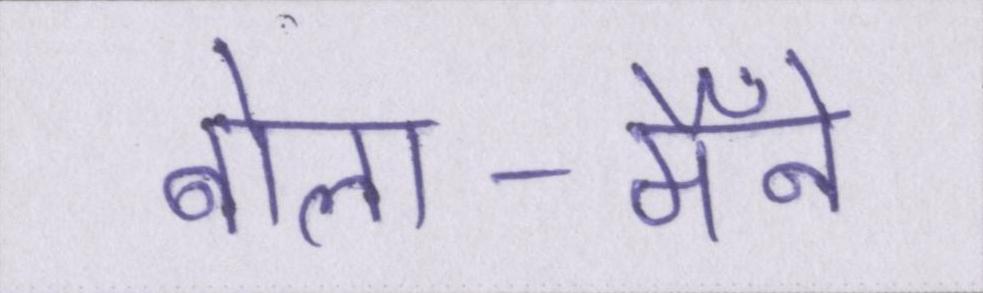 बोला-मैँने